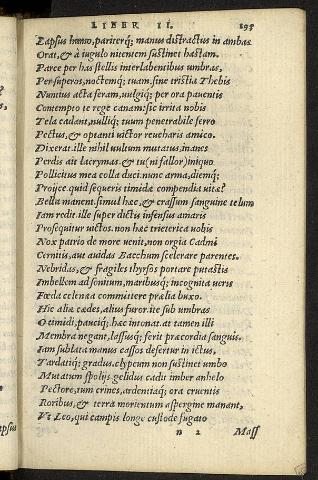 LIBER II. 195
Lapsus humo, pariterq; manus distractus in ambas
Orat, & à iugulo nitentem sustinet hastam.
Parce per has stellis interlabentibus umbras,
Per superos, noctemq; tuam. sine tristia Thebis
Nuntius acta feram, uulgiq; per ora pauentis
Contempto te rege canam: sic irrita nobis
Tela cadant, nulliq; tuum penetrabile ferro
Pectus, & optanti uictor reueharis amico.
Dixerat. ille nihil uultum mutatus, inanes
Perdis ait lacrymas. & tu (ni fallor) iniquo
Pollicitus mea colla duci. nunc arma, diemq;
Proijce. quid sequeris timidæ compendia uitæ?
Bella manent. simul hæc, & crassum sanguine telum
Iam redit. ille super dictis infensus amaris
Prosequitur uictos. non hæc trieterica uobis
Nox patrio de more uenit, non orgia Cadmi
Cernitis, aut auidas Bacchum scelerare parentes.
Nebridas, & fragiles thyrsos portare putastis
Imbellem ad sonitum, maribusq; incognita ueris
Fœda celenæa committere prælia buxo.
Hic aliæ cædes, alius furor. ite sub umbras
O timidi, pauciq;. hæc intonat. at tamen illi
Membra negant, lassusq; ferit præcordia sanguis.
Iam sublata manus cassos defertur in ictus,
Tardatiq; gradus. clypeum non sustinet umbo
Mutatum spolijs. gelidus cadit imber anhelo
Pectore, tum crines, ardentiaq; ora cruentis
Roribus, & tetra morientum aspergine manant,
Vt Leo, qui campis longe custode fugato
n 2 Mass
apsus